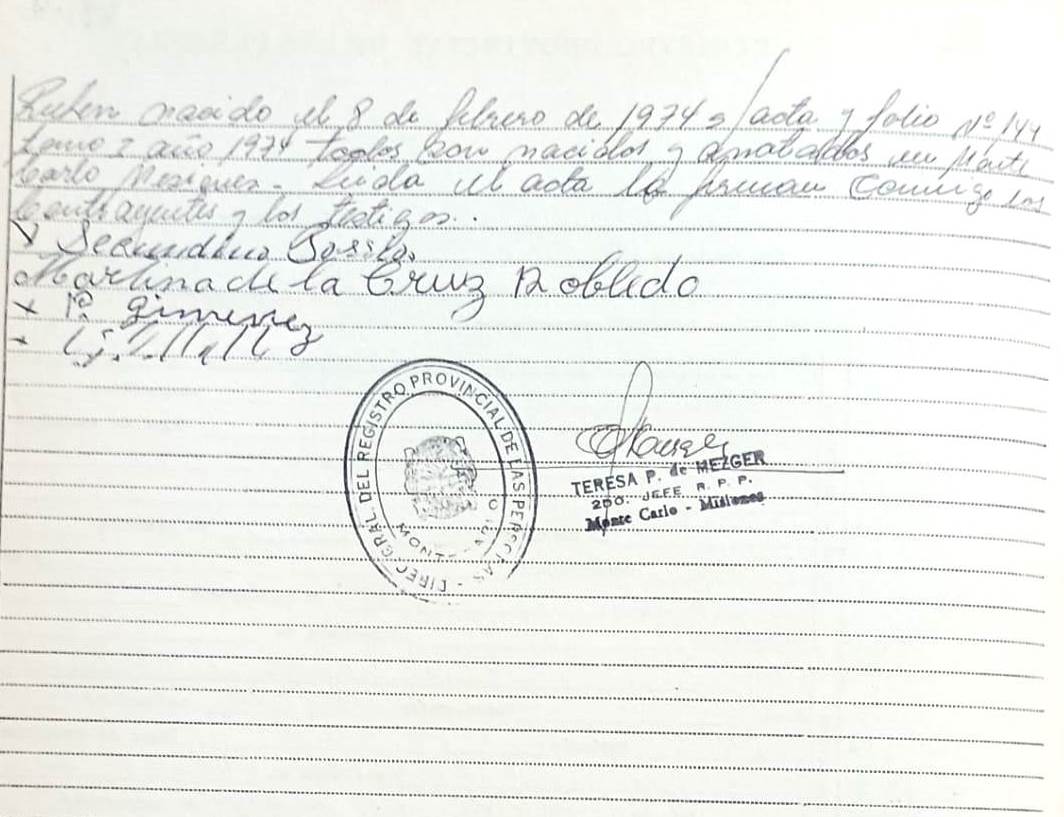 Ruben nacido el 8 de febrero de 1974 s/acta y folio Nº 144
tomo I año 1974 todos son nacidos y anotados en Monte
Carlo Misiones - Leida el acta la firman conmigo los
Contrayentes y los testigos.
Secundino
Martina de la Cruz Robledo
x P. Gimenez
DIREC GRAL DEL REGISTRO PROVINCIAL DE LAS PERSONAS
MONTE
TERESA P. de MEZGER
2DO. JEFE R. P. P.
Monte Carlo - Misiones